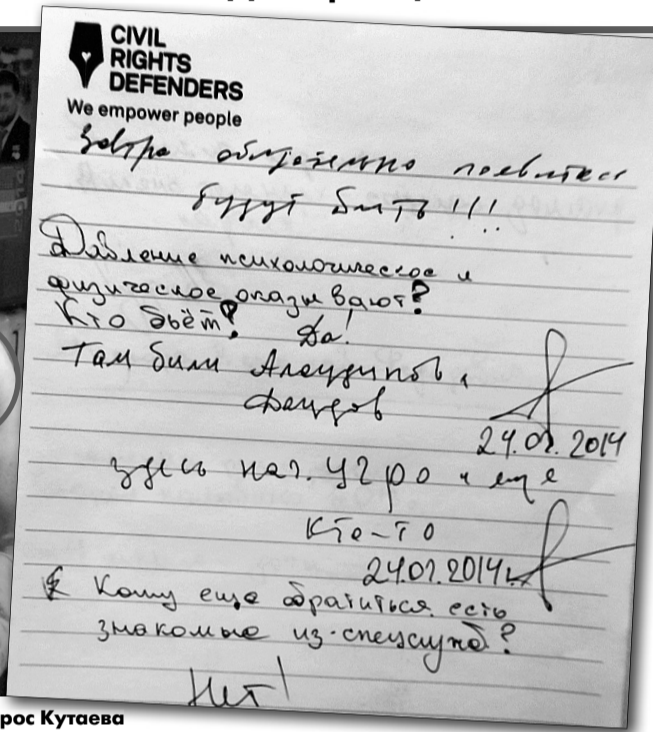 CIVIL
RIGHTS
DEFENDERS
We empower people
Завтра обязательно появитесь
будут бить!!!
Давление психологическое и
физическое оказывают?
Кто бьёт? Да!
Там били Алаудинов,
Даудов
24.02.2014
здесь нач. угро и еще
кто-то
24.02.2014г.
К Кому еще обратиться есть
знакомые из спецслужб?
Нет!
рос Кутаева